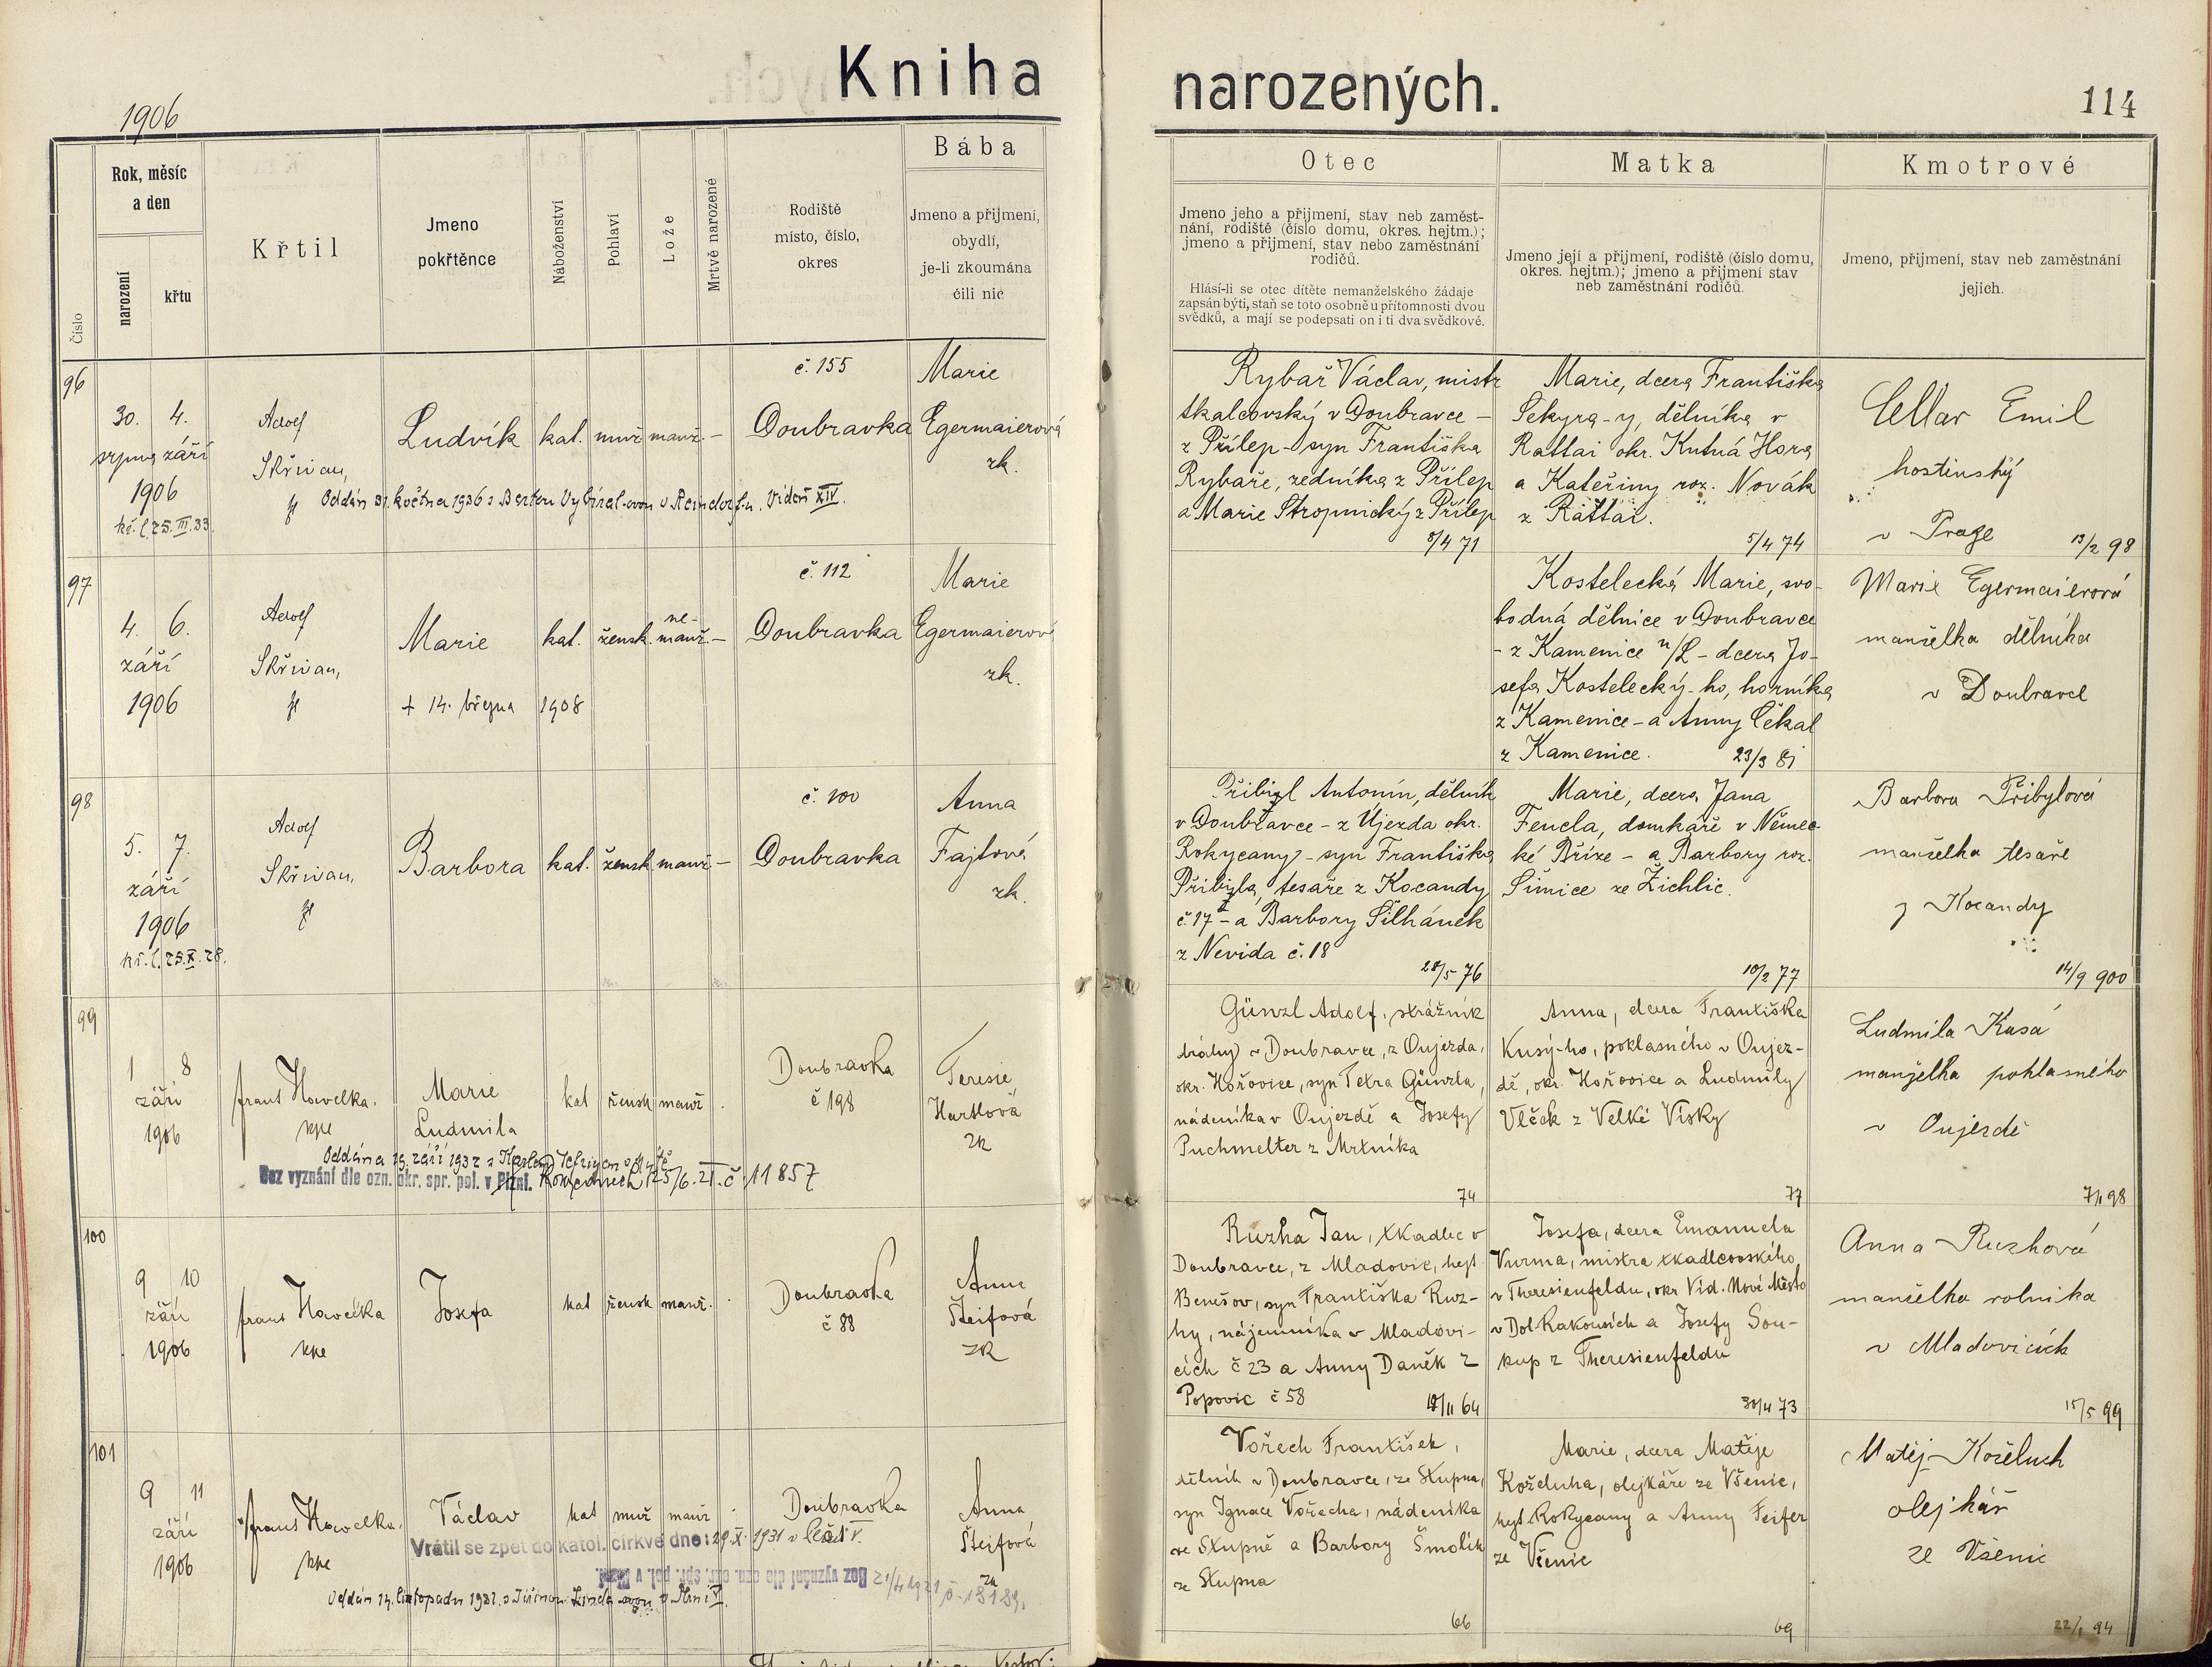 Kniha narozených.
1906
114
Číslo
Rok, měsíc
a den
narození
křtu
Křtil
Jmeno
pokřtěnce
Náboženství
Pohlaví
Lože
Mrtvě narozené
Rodiště
místo, číslo,
okres
Bába
Jmeno a přijmení,
obydlí,
je-li zkoumána
čili nic
Otec
Jmeno jeho a přijmení, stav neb zaměst-
nání, rodiště (číslo domu, okres. hejtm.);
jmeno a přijmení, stav nebo zaměstnání
rodičů.
Hlásí-li se otec dítěte nemanželského žádaje
zapsán býti, staň se toto osobně u přítomnosti dvou
svědků, a mají se podepsati on i ti dva svědkové.
Matka
Jmeno její a přijmení, rodiště (číslo domu,
okres. hejtm.); jmeno a přijmení stav
neb zaměstnání rodičů.
Kmotrové
Jmeno, přijmení, stav neb zaměstnání
jejich.
96
30. 4.
srpna září
1906
kř. l. 25.III.33.
Adolf
Skřivan,
Ludvík
kat. muž. manž. –
č. 155
Doubravka
Marie
Egermaierová
zk.
Oddán 31. května 1936 s Bertou Vybíral-ovou v Reindorf-u. Vídeň XIV.
Rybař Václav, mistr
tkalcovský v Doubravce –
z Přílep – syn Františka
Rybaře, zedníka z Přílep
a Marie Stropnický z Přílep
8/4 71
Marie, dcera Františka
Sekyra-y, dělníka v
Rattai okr. Kutná Hora
a Kateřiny roz. Novák
z Rattai.
5/4 74
Cellar Emil
hostinský
v Praze
13/2 98
97
4. 6.
září
1906
Adolf
Skřivan,
Marie
+ 14. března 1908
kat. žensk. ne-
manž. –
č. 112
Doubravka
Marie
Egermaierová
zk.
Kostelecká Marie, svo-
bodná dělnice v Doubravce
– z Kamenice n/L – dcera Jo-
sefa Kostelecký-ho, horníka
z Kamenice – a Anny Čekal
z Kamenice.
23/3 81
Marie Egermaierová
manželka dělníka
v Doubravce
98
5. 7.
září
1906
kř. l. 25.X.28.
Adolf
Skřivan,
Barbora
kat. žensk. manž. –
č. 100
Doubravka
Anna
Fajtová
zk.
Přibyl Antonín, dělník
v Doubravce – z Újezda okr.
Rokycany – syn Františka
Přibyla, tesaře z Kocandy
č. 17 – a Barbory Šilhánek
z Nevida č. 18
28/5 76
Marie, dcera Jana
Fencla, domkáře v Němec-
ké Bříze – a Barbory roz.
Šimice ze Žichlic.
10/2 77
Barbora Přibylová
manželka tesaře
z Kocandy
14/9 900
99
1 8
září
1906
frant Havelka.
kpe
Marie
Ludmila
kat žensk manž .
Doubravka
č 198
Teresie
Hartlová
zk
Oddána 19. září 1932 s Karlem
Bez vyznání dle ozn. okr. spr. pol. v Plzni. Rokycanech 25/6. 21. č. 11857
Günzl Adolf, strážník
dráhy v Doubravce, z Oujezda,
okr. Hořovice, syn Petra Günzla,
nádeníka v Oujezdě a Josefy
Puchmelter z Mrtníka
74
Anna, dcera Františka
Kusý-ho, poklasného v Oujez-
dě, okr. Hořovice a Ludmily
Vlček z Velké Vísky
77
Ludmila Kusá
manželka poklasného
v Oujezdě
7/1 98
100
9 10
září
1906
frant Havelka
kpe
Josefa
kat žensk manž. .
Doubravka
č 88
Anna
Šteifová
zk
Ruzha Jan, tkadlec v
Doubravce, z Mladovic, hejt
Benešov, syn Františka Ruz-
hy, nájemníka v Mladovi-
cích č 23 a Anny Daněk z
Popovic č 58
18/11 64
Josefa, dcera Emanuela
Vurma, mistra tkadlcovského
v Theresienfeldu, okr Víd. Nové Město
v Dol. Rakousích a Josefy Sou-
kup z Theresienfeldu
30/4 73
Anna Ruzhová
manželka rolníka
v Mladovicích
15/5 99
101
9 11
září
1906
frant Havelka.
kpe
Václav
kat muž manž .
Doubravka
Anna
Šteifová
zk
Vrátil se zpět do katol. církve dne: 29.X. 1931 v
Bez vyznání dle ozn. okr. spr. pol. v Plzni. 21/4 1921 č. 13189.
Oddán 14. listopadu 1931. s Jiřinou ovou v Plzni V.
Vořech František,
dělník v Doubravce, ze Skupna,
syn Ignace Vořecha, nádeníka
ve Skupně a Barbory Šmolík
ze Skupna
66
Marie, dcera Matěje
Koželuha, olejkáře ze Všenic,
hejt. Rokycany a Anny Feifer
ze Všenic
69
Matěj Koželuh
olejkář
ze Všenic
22/1 94